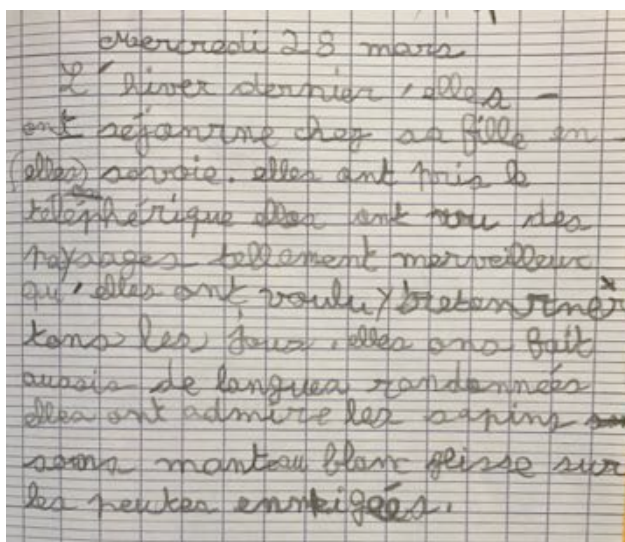 Mercredi 28 mars
L'hiver dernier, elles
ont séjourné chez sa fille en
(elles) savoie. elles ont pris le
téléphérique elles ont vu des
paysages tellement merveilleux
qu'elles ont voulu y retourner
tous les jous. elles ons fait
aussis de longues randonnées
elles ont admire les sapins
sous manteau blanc glisse sur
les peutes enneigées.